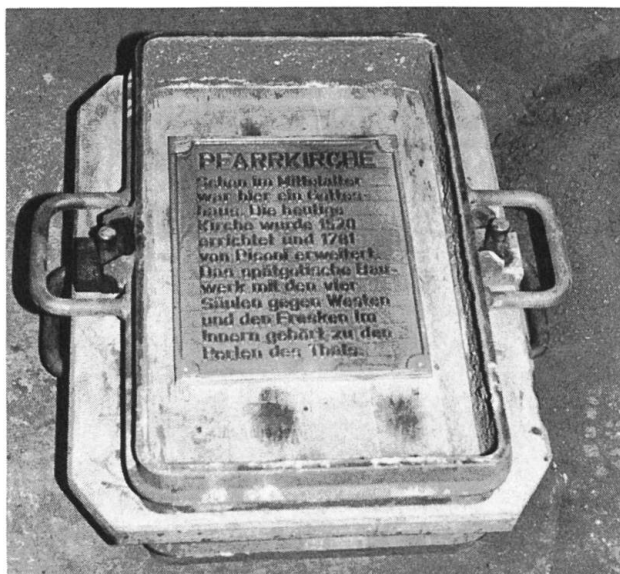 PFARRKIRCHE
Schon im Mittelalter
war hier ein Gottes-
haus. Die heutige
Kirche wurde 1520
errichtet und 1781
von Pisoni erweitert.
Das spätgotische Bau-
werk mit den vier
Säulen gegen Westen
und den Fresken im
Innern gehört zu den
Perlen des Thals.